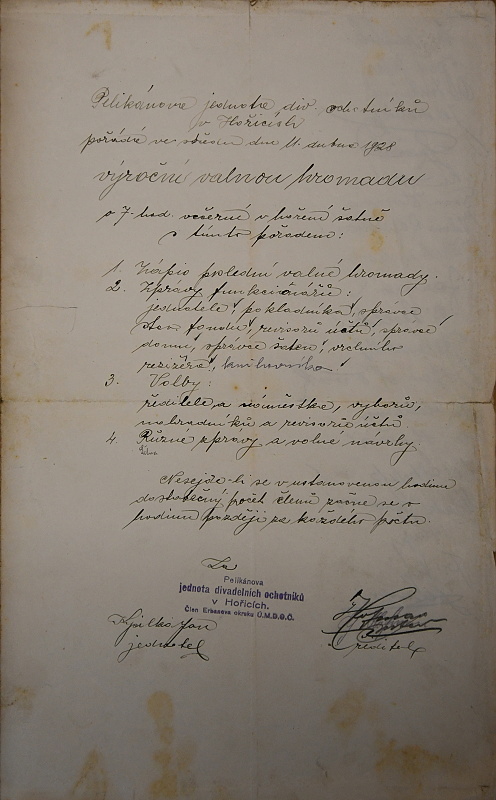 Pelikánova jednota div. ochotníků
v Hořicích
pořádá ve středu dne 11. dubna 1928
výroční valnou hromadu
o 7. hod. večerné v hoření šatně
s tímto pořadem:
1. Zápis poslední valné hromady.
2. Zprávy funkcionářů:
jednatele, pokladníka, správce
stav. fondu, revisorů účtů, správce
domu, správce šaten, vrchního
režiséra, knihovníka
3. Volby:
ředitele, a náměstka, výborů,
náhradníků a revisorů účtů.
4. Různé zprávy a volné návrhy.
Nesejde-li se v ustanovenou hodinu
dostatečný počet členů začne se o
hodinu později za každého počtu.
Za
Pelikánova
jednota divadelních ochotníků
v Hořicích.
Člen Erbenova okrsku Ú.M.D.O.Č.
Jan
jednatel
ředitel